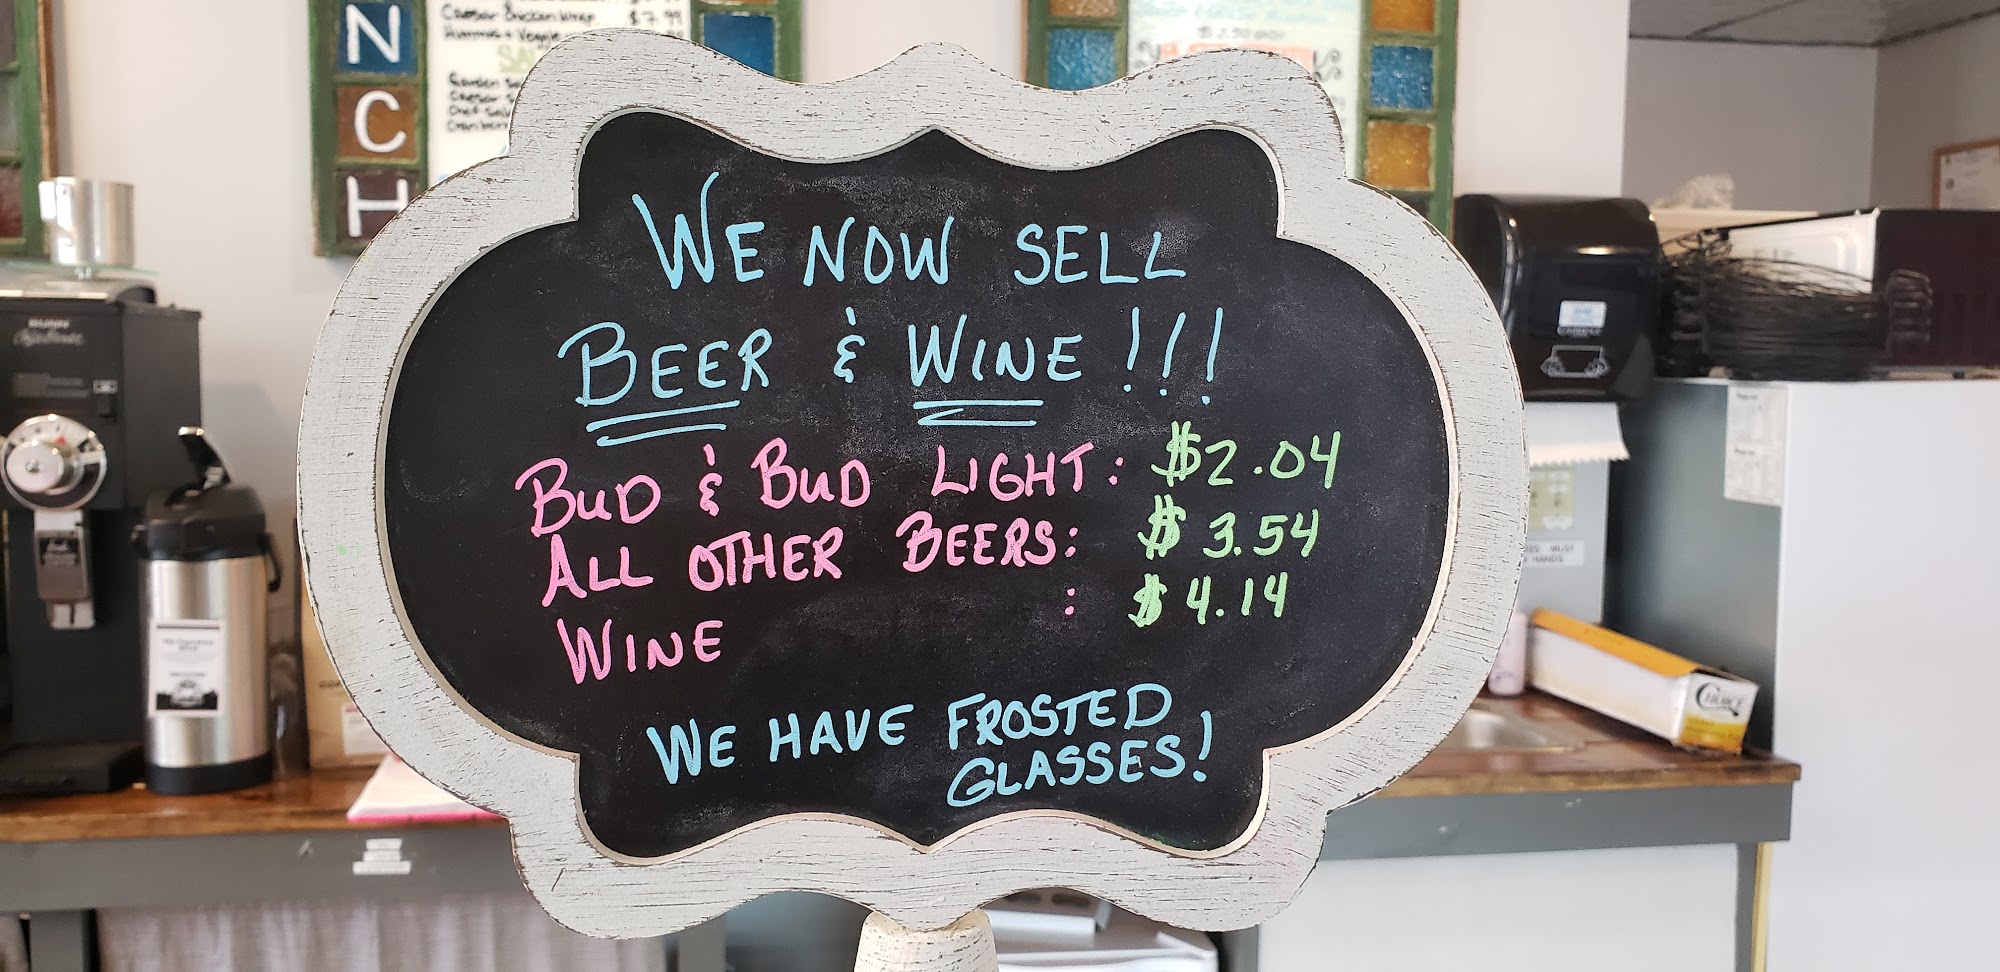 N
C
H
Caesar Chicken Wrap $7.99
WE NOW SELL
BEER & WINE!!!
BUD & BUD LIGHT: $2.04
ALL OTHER BEERS: $3.54
WINE : $4.14
WE HAVE FROSTED
GLASSES!
BUNN
CHOICE